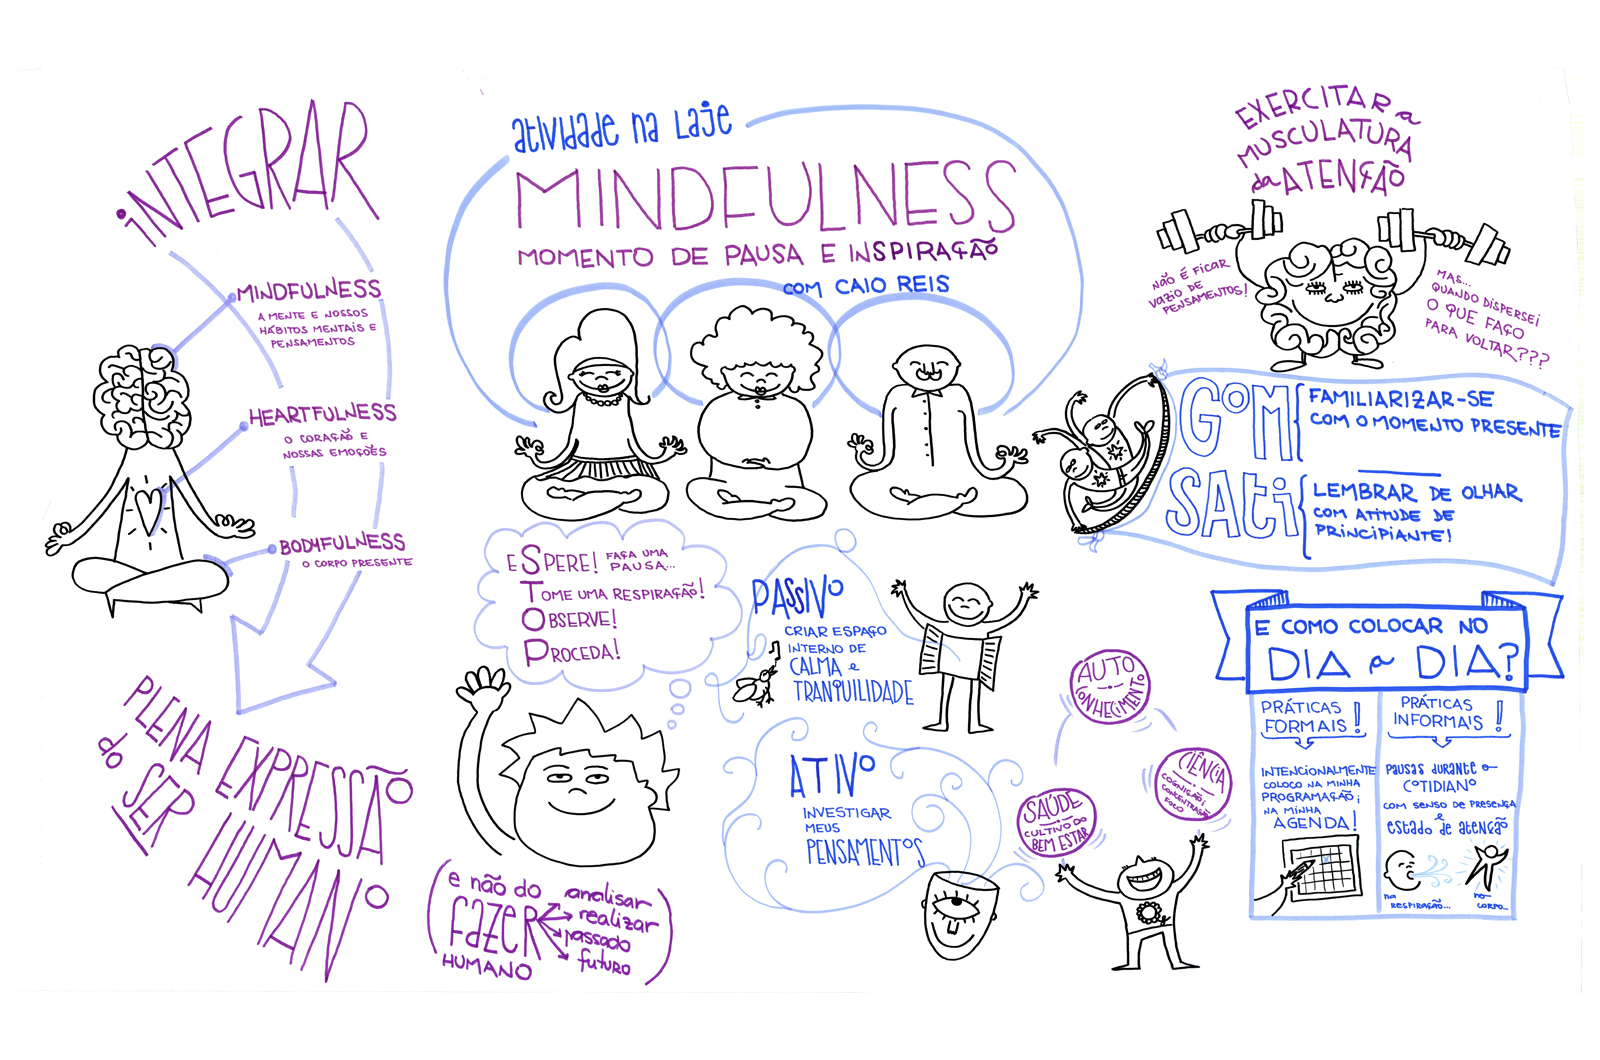 iNTEGRAR
MINDFULNESS
A MENTE E NOSSOS
HÁBITOS MENTAIS E
PENSAMENTOS
HEARTFULNESS
O CORAÇÃO E
NOSSAS EMOÇÕES
BODYFULNESS
O CORPO PRESENTE
PLENA EXPRESSÃO
do SER HUMANO
atividade na Laje
MINDFULNESS
MOMENTO DE PAUSA E INSPIRAÇÃO
com CAIO REIS
ESPERE! FAÇA UMA
PAUSA...
TOME UMA RESPIRAÇÃO!
OBSERVE!
PROCEDA!
(e não do
FAZER
HUMANO
analisar
realizar
passado
futuro)
PASSIVO
CRIAR ESPAÇO
INTERNO DE
CALMA e
TRANQUILIDADE
ATIVO
INVESTIGAR
MEUS
PENSAMENTOS
AUTO
CONHECIMENTO
CIÊNCIA
COGNIÇÃO;
CONCENTRAÇÃO
FOCO
SAÚDE
CULTIVO DO
BEM ESTAR
EXERCITAR a
MUSCULATURA
da ATENÇÃO
NÃO É FICAR
VAZIO DE
PENSAMENTOS!
MAS...
QUANDO DISPERSEI
O QUE FAÇO
PARA VOLTAR???
GOM
FAMILIARIZAR-SE
COM O MOMENTO PRESENTE
SATI
LEMBRAR DE OLHAR
COM ATITUDE DE
PRINCIPIANTE!
E COMO COLOCAR NO
DIA a DIA?
PRÁTICAS
FORMAIS!
INTENCIONALMENTE
COLOCO NA MINHA
PROGRAMAÇÃO;
NA MINHA
AGENDA!
PRÁTICAS
INFORMAIS!
PAUSAS DURANTE O
COTIDIANO
COM SENSO DE PRESENÇA
e
estado de atenção
na
RESPIRAÇÃO...
no
CORPO...